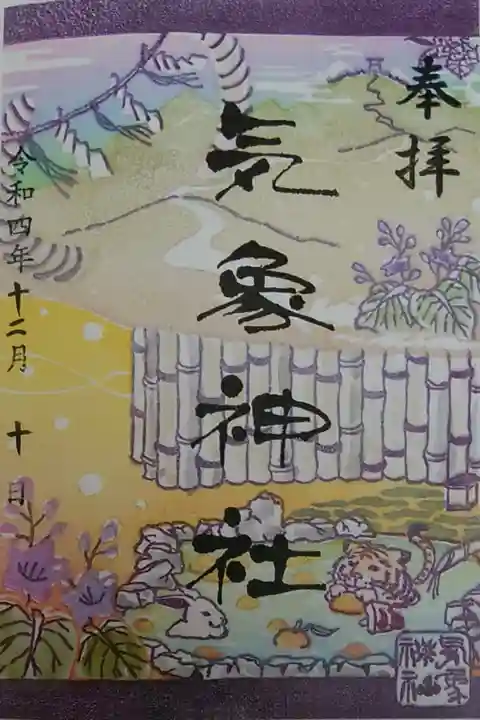 奉拝
気象神社
令和四年十二月十日
気象神社